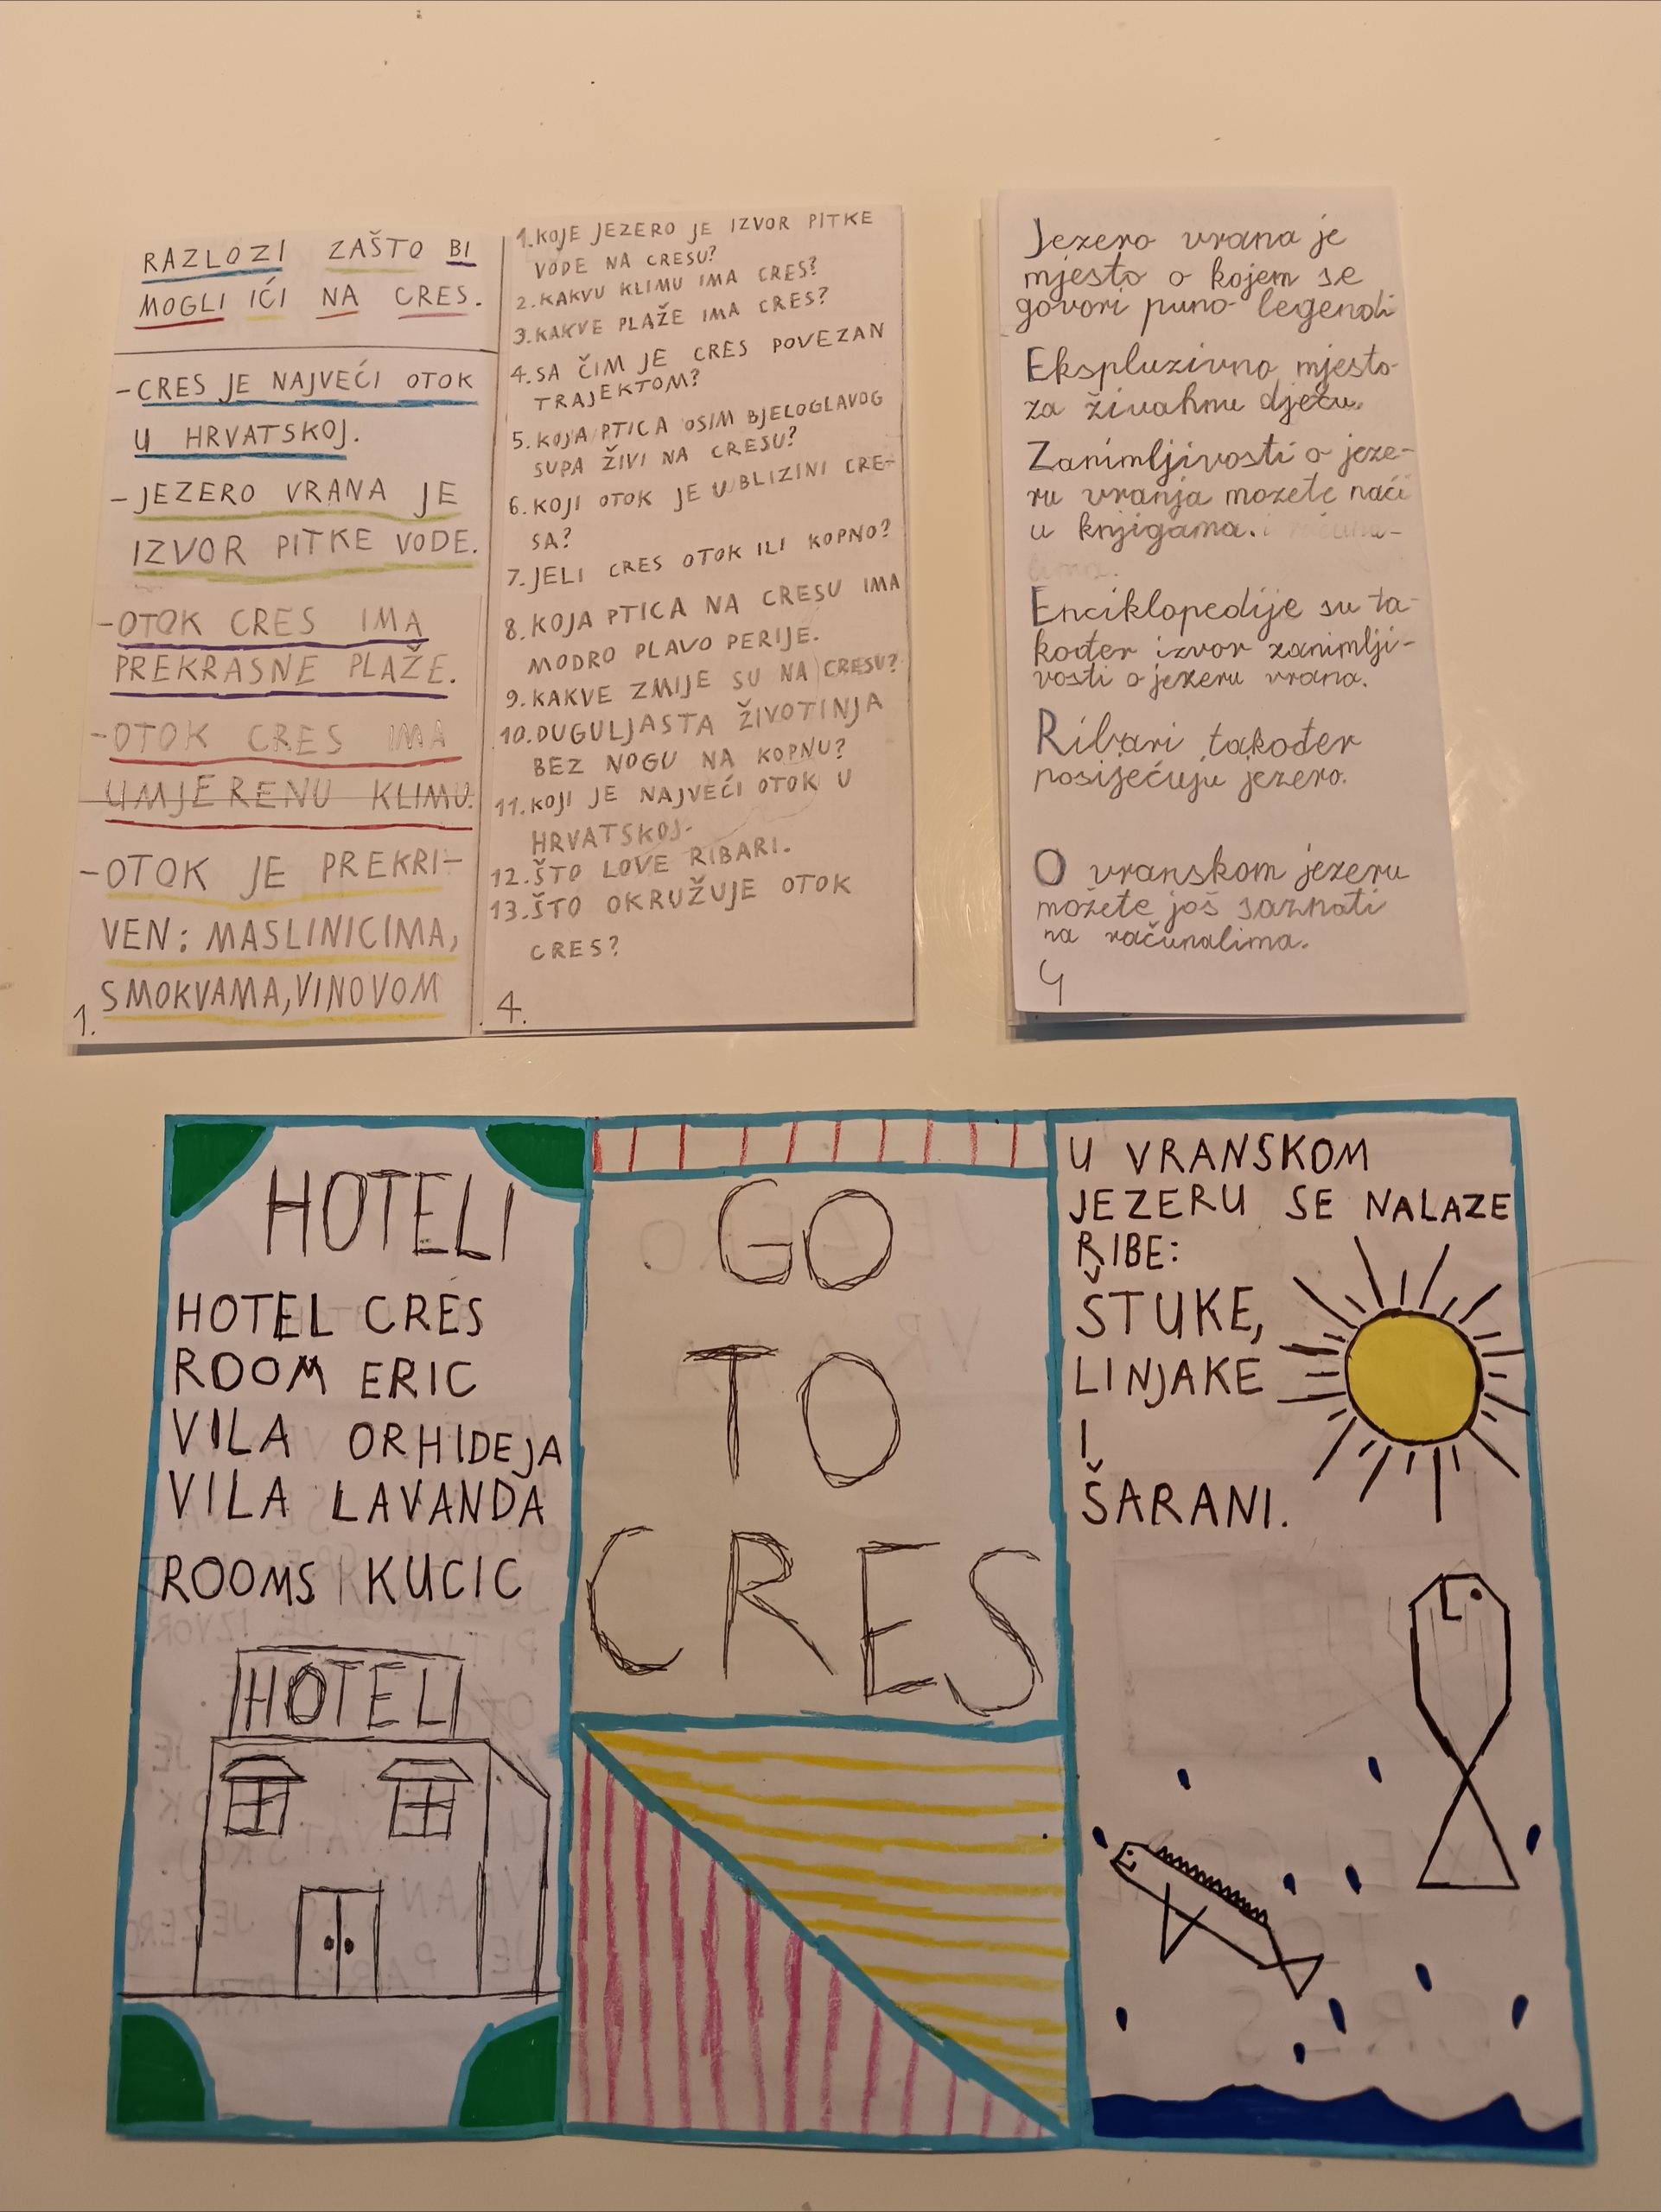 RAZLOZI ZAŠTO BI
MOGLI IĆI NA CRES.
-CRES JE NAJVEĆI OTOK
U HRVATSKOJ.
-JEZERO VRANA JE
IZVOR PITKE VODE.
-OTOK CRES IMA
PREKRASNE PLAŽE.
-OTOK CRES IMA
UMJERENU KLIMU.
-OTOK JE PREKRI-
VEN: MASLINICIMA,
SMOKVAMA,VINOVOM
1.
1.KOJE JEZERO JE IZVOR PITKE
VODE NA CRESU?
2.KAKVU KLIMU IMA CRES?
3.KAKVE PLAŽE IMA CRES?
4.SA ČIM JE CRES POVEZAN
TRAJEKTOM?
5.KOJA PTICA OSIM BJELOGLAVOG
SUPA ŽIVI NA CRESU?
6.KOJI OTOK JE U BLIZINI CRE-
SA?
7.JELI CRES OTOK ILI KOPNO?
8.KOJA PTICA NA CRESU IMA
MODRO PLAVO PERIJE.
9.KAKVE ZMIJE SU NA CRESU?
10.DUGULJASTA ŽIVOTINJA
BEZ NOGU NA KOPNU?
11.KOJI JE NAJVEĆI OTOK U
HRVATSKOJ.
12.ŠTO LOVE RIBARI.
13.ŠTO OKRUŽUJE OTOK
CRES?
4.
Jezero vrana je
mjesto o kojem se
govori puno legendi
Ekspluzivno mjesto
za živahnu djecu.
Zanimljivosti o jeze-
ru vranja mozete naći
u knjigama. i računa-
lima.
Enciklopedije su ta-
kođer izvor zanimlji-
vosti o jezeru vrana.
Ribari također
posijećuju jezero.
O vranskom jezeru
možete još saznati
na računalima.
4
HOTELI
HOTEL CRES
ROOM ERIC
VILA ORHIDEJA
VILA LAVANDA
ROOMS KUCIC
HOTELI
GO
TO
CRES
U VRANSKOM
JEZERU SE NALAZE
RIBE:
ŠTUKE,
LINJAKE
I
ŠARANI.